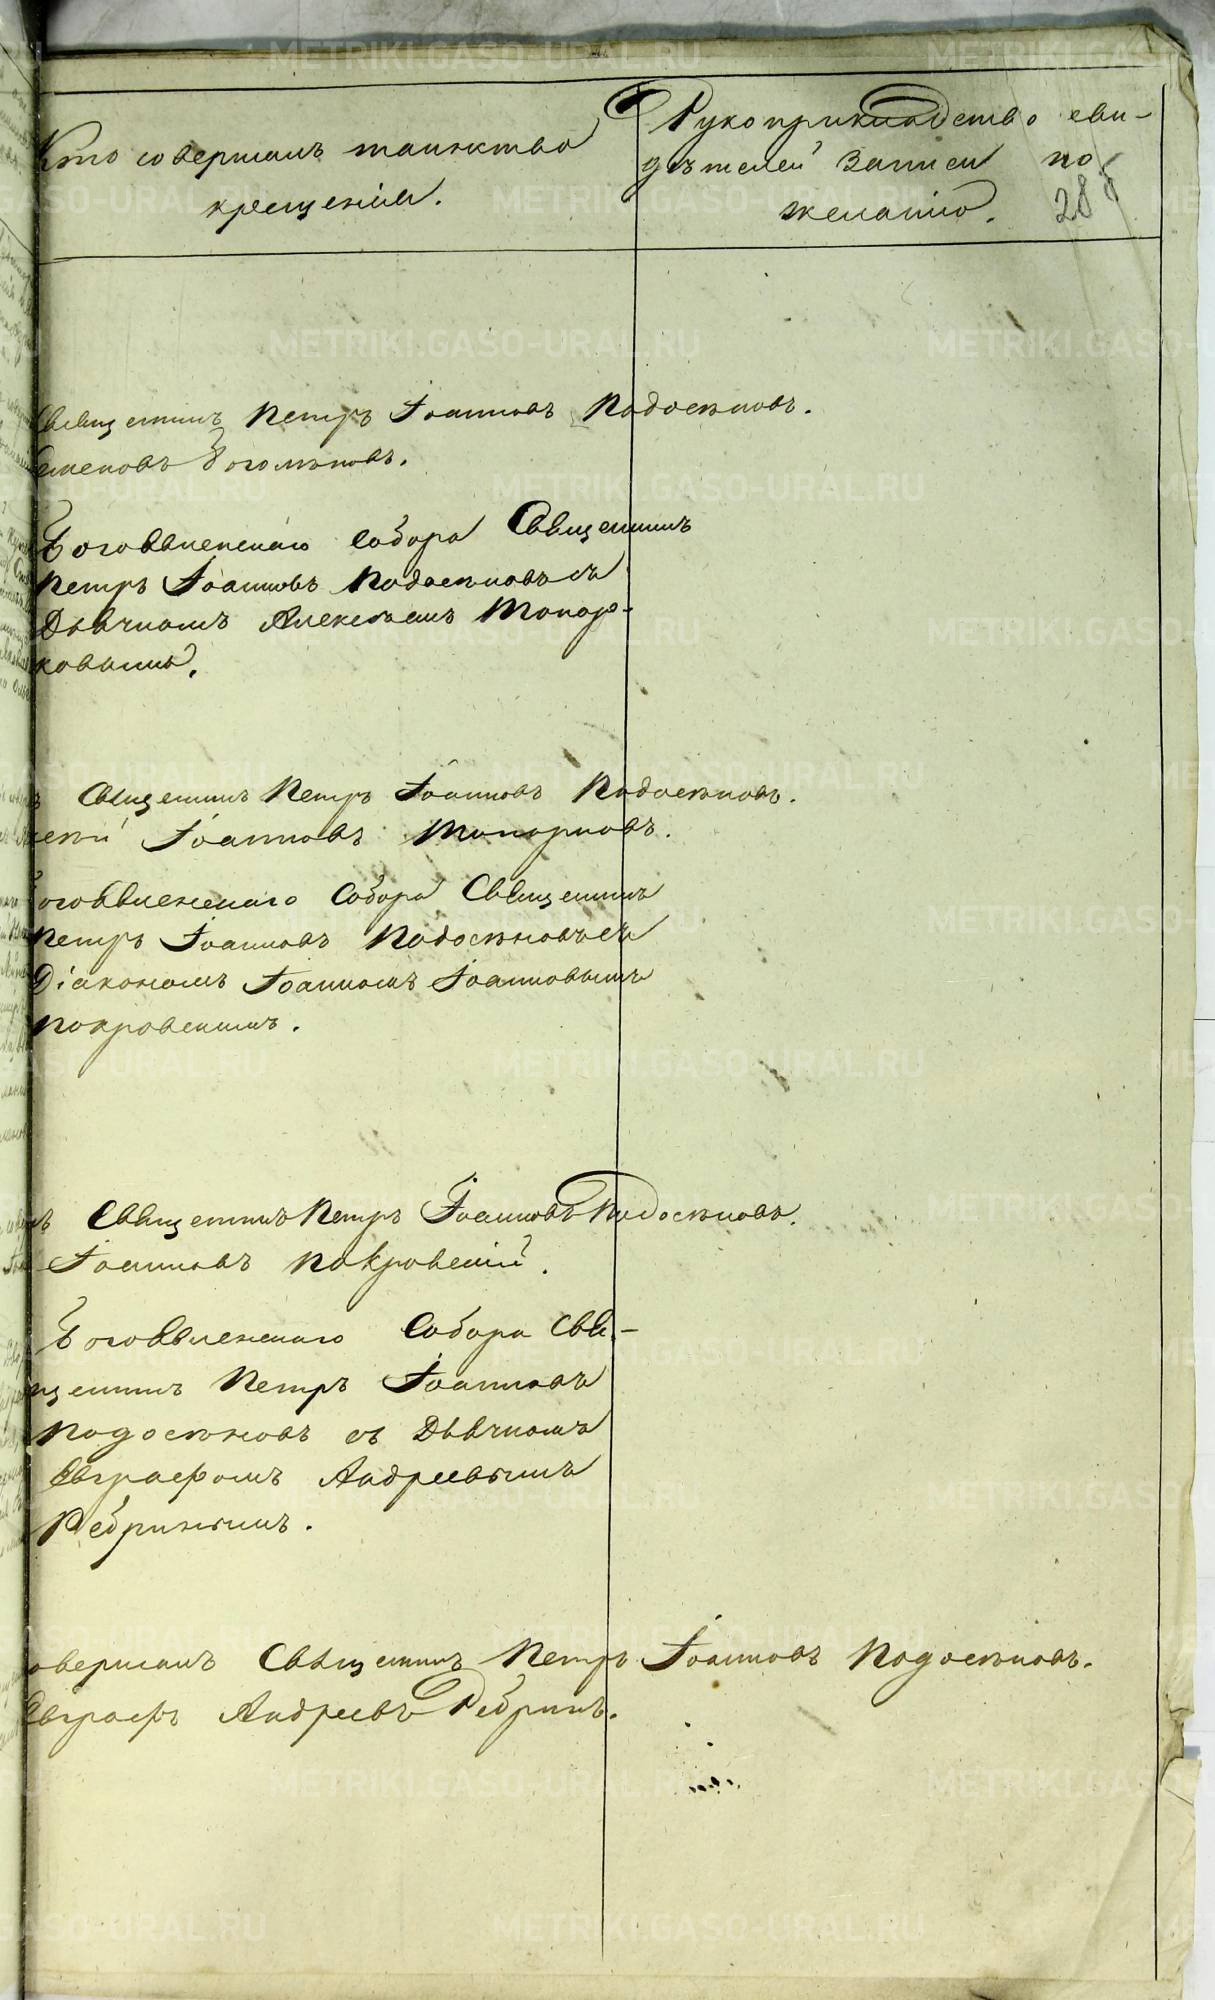 Кто совершалъ таинство
крещенія.
Рукоприкладство сви-
дѣтелей записи по
желанію.
Священникъ Петръ Іоанновъ Подосеновъ.
Богоявленскаго Собора Священникъ
Петръ Іоанновъ Подосеновъ съ
Дьячкомъ Алексѣемъ Топор-
ковымъ.
Священникъ Петръ Іоанновъ Подосеновъ.
Іоанновъ Топорковъ.
Богоявленскаго Собора Священникъ
Петръ Іоанновъ Подосеновъ съ
Діакономъ Іоанномъ Іоанновымъ
Покровскимъ.
Священникъ Петръ Іоанновъ Подосеновъ.
Іоанновъ Покровскій.
Богоявленскаго Собора Свя-
щенникъ Петръ Іоанновъ
Подосеновъ съ Дьячкомъ
Евграфомъ Андреевымъ
Ребринымъ.
Священникъ Петръ Іоанновъ Подосеновъ.
Евграфъ Андреевъ Ребринъ.
METRIKI.GASO-URAL.RU